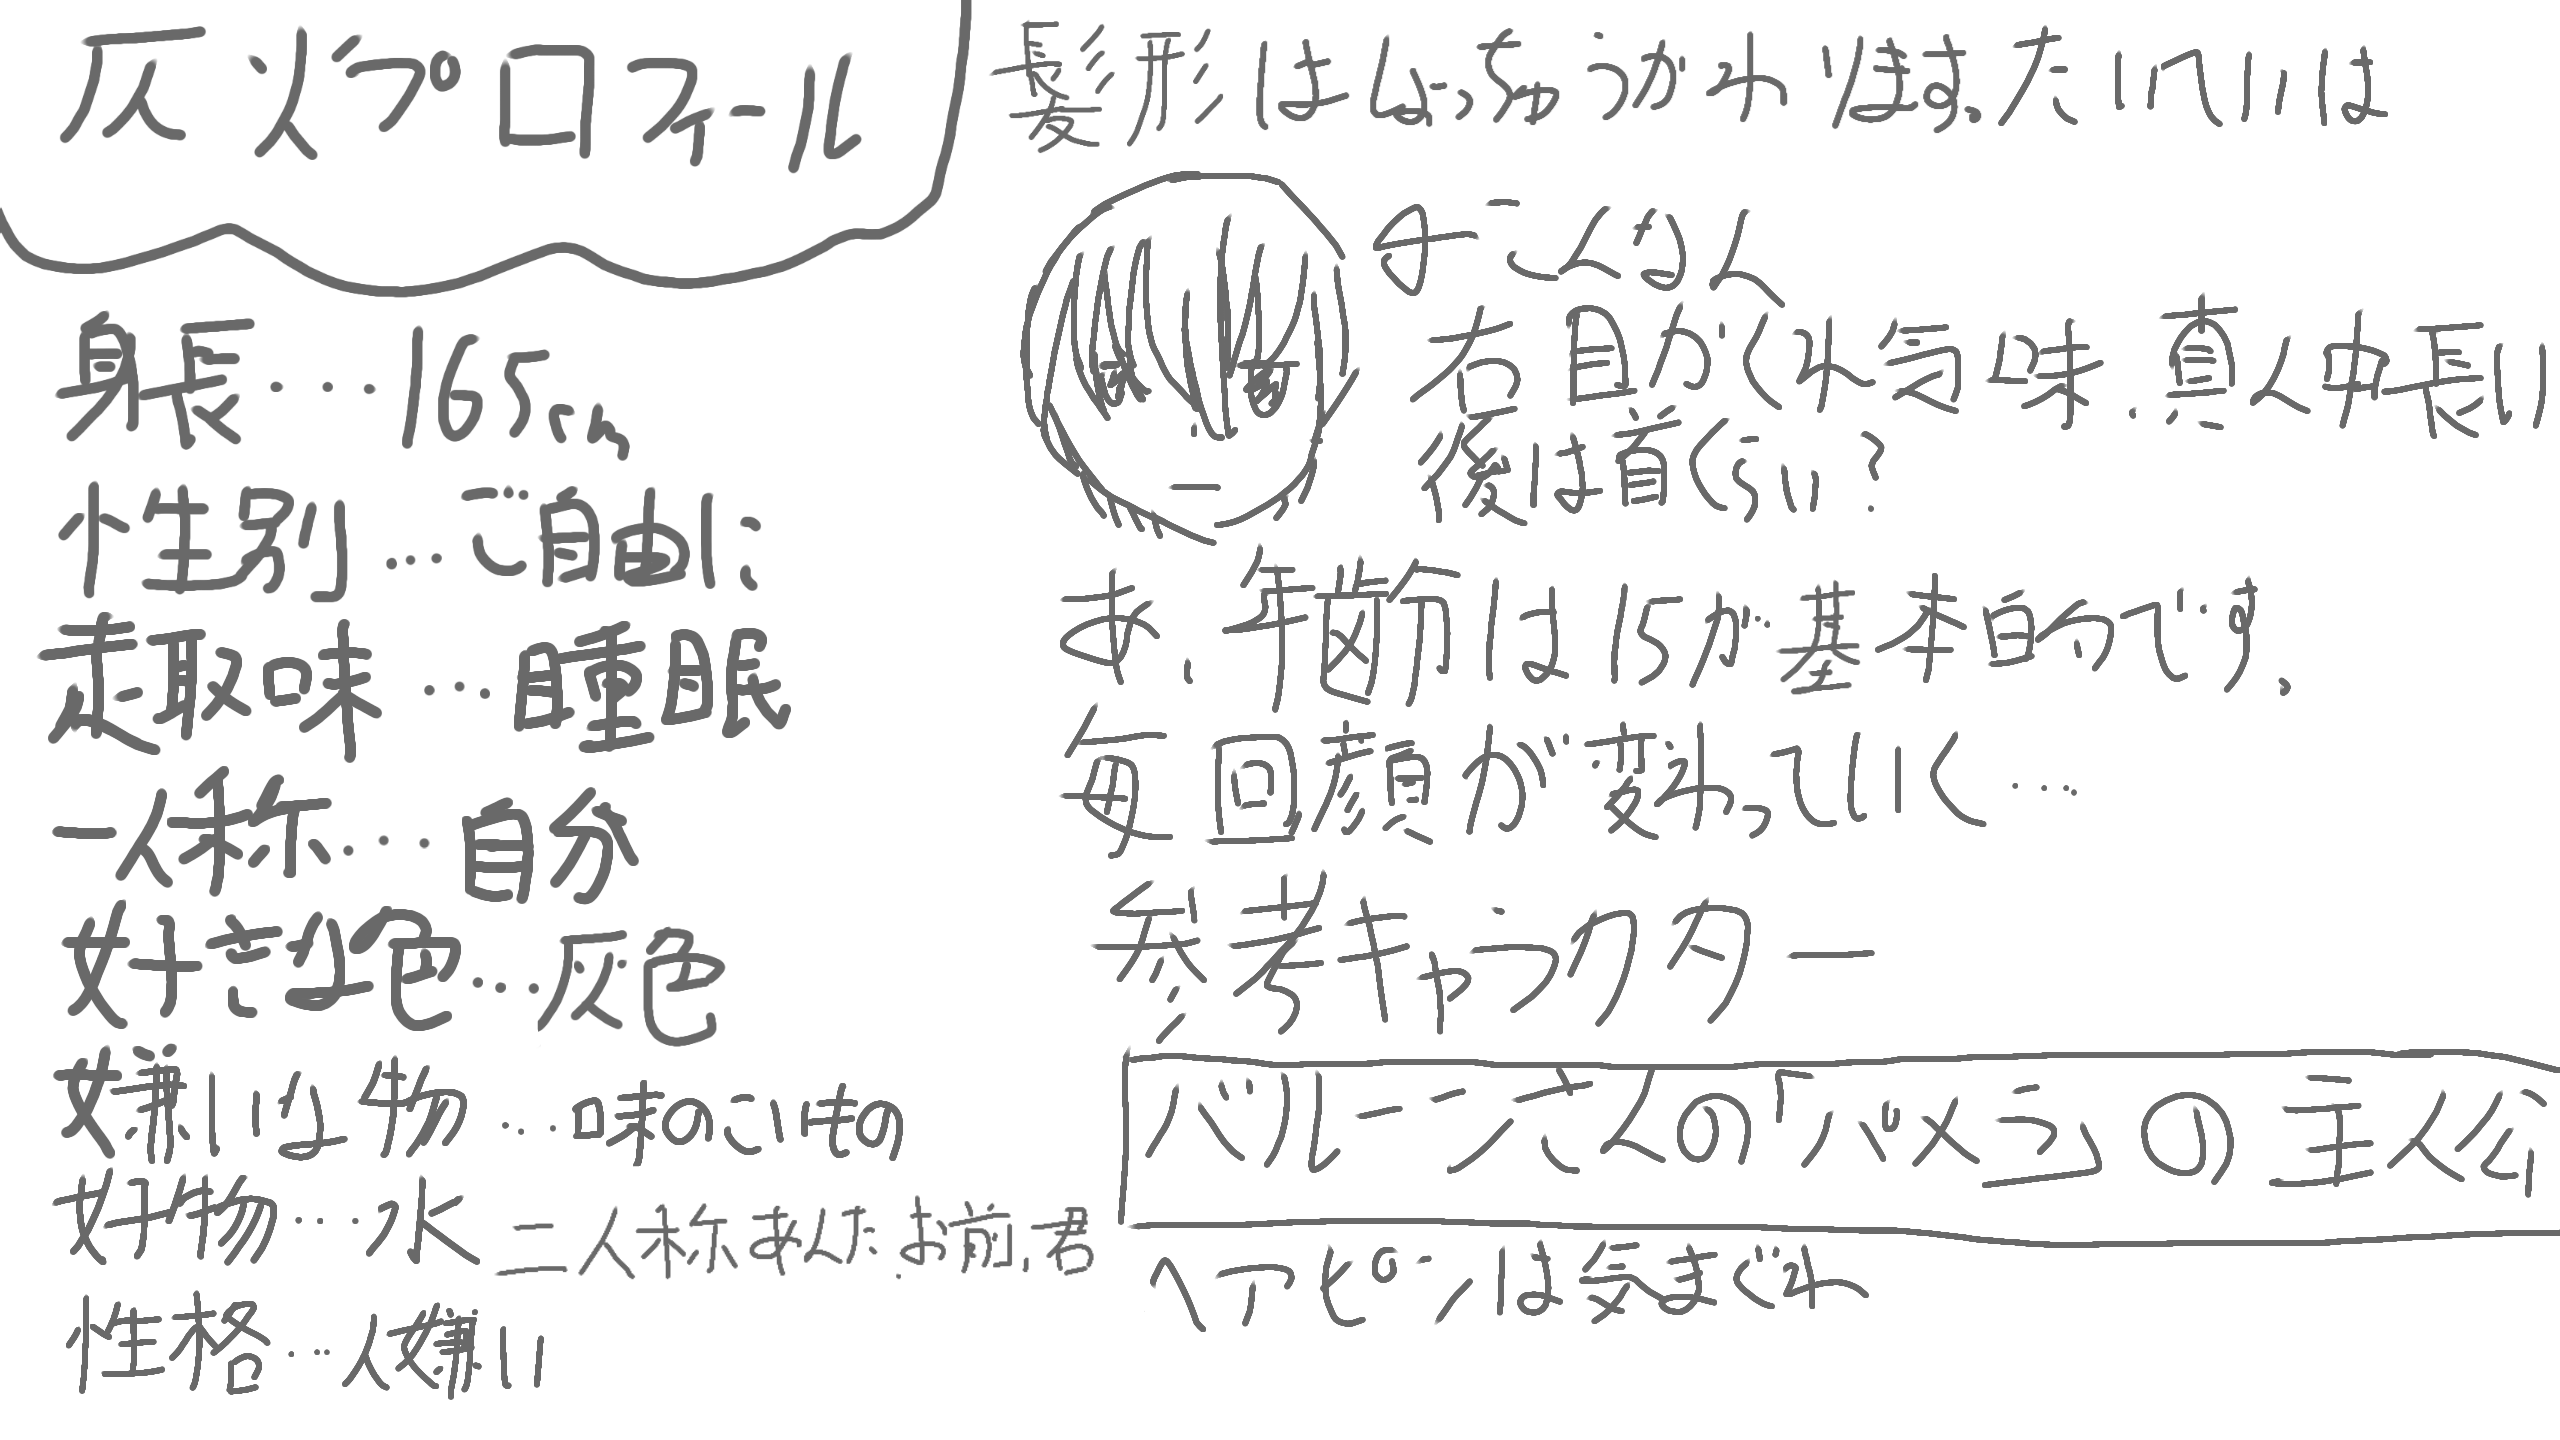 灰火プロフィール
身長・・・165cm
性別・・・ご自由に
趣味・・・睡眠
一人称・・・自分
好きな色・・・灰色
嫌いな物・・・味のこいもの
好物・・・水
二人称あんた、お前、君
性格・・・人嫌い
髪形はしょっちゅうかわります、たいていは
こんなん
右目がくれ気味、真ん中長い
後は首くらい?
あ、年齢は15が基本的です、
毎回顔が変わっていく・・・
参考キャラクター
バルーンさんの「パメラ」の主人公
ヘアピンは気まぐれ